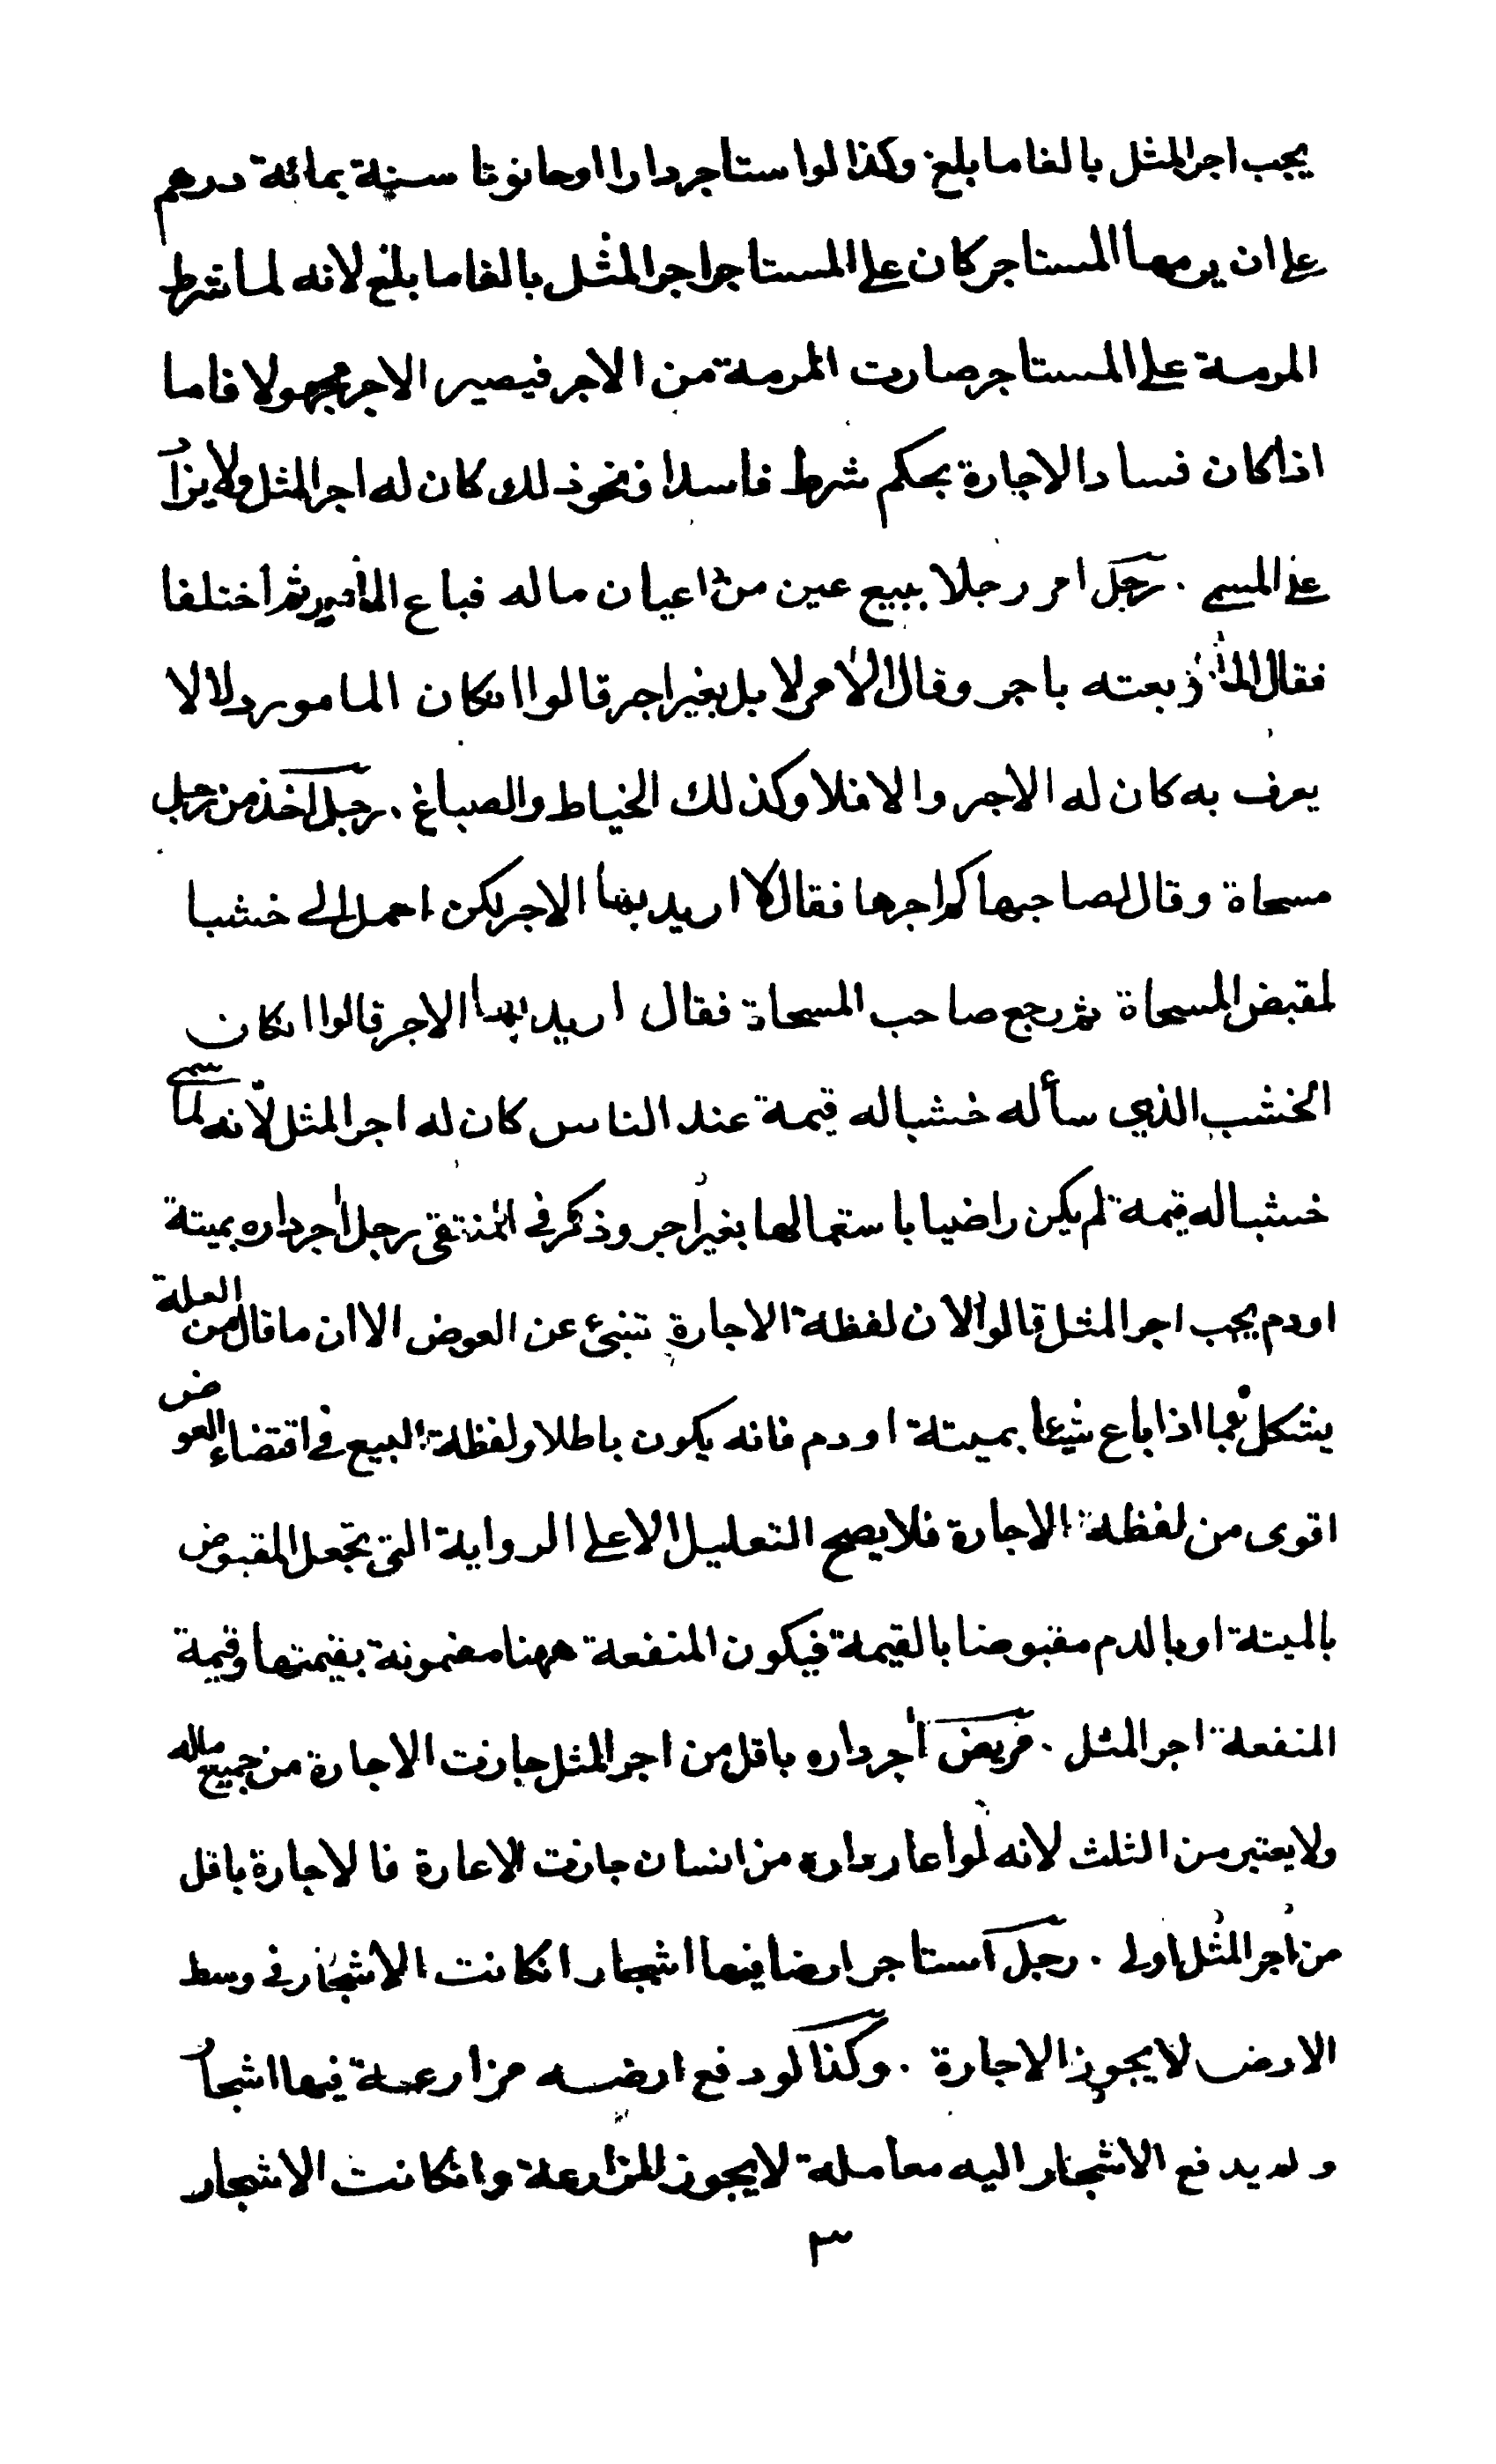 يجب اجر المثل بالغا ما بلغ وكذا لو استاجر دارا او حانوتا سنة بمائة درهم
على ان يرمها المستاجر كان على المستاجر اجر المثل بالغا ما بلغ لانه لما شرط
المرمة على المستاجر صارت المرمة من الاجر فيصير الاجر مجهولا فاما
اذا كان فساد الاجارة بحكم شرط فاسد او نحو ذلك كان له اجر المثل ولا يزاد
على المسمى . رجل امر رجلا ببيع عين من اعيان ماله فباع المامور ثم اختلفا
فقال بعته باجر وقال الآمر لا بل بغير اجر قالوا ان كان المامور دلالا
يعرف به كان له الاجر والا فلا وكذلك الخياط والصباغ . رجل اخذ من رجل
مسحاة وقال لصاحبها كم اجرها فقال لا اريد بها الاجر لكن احمل لي خشبا
لمقبض المسحاة ثم رجع صاحب المسحاة فقال اريد بها الاجر قالوا ان كان
الخشب الذي سأله خشبا له قيمة عند الناس كان له اجر المثل لانه لما سمى
خشبا له قيمة لم يكن راضيا باستعمالها بغير اجر وذكر في المنتقى رجل آجر داره بميتة
او دم يجب اجر المثل قالوا لان لفظة الاجارة تنبئ عن العوض الا ان ما قال من العلة
يشكل بما اذا باع شيئا بميتة او دم فانه يكون باطلا ولفظة البيع في اقتضاء العوض
اقوى من لفظة الاجارة فلا يصح التعليل الا على الرواية التي تجعل المقبوض
بالميتة او بالدم مقبوضا بالقيمة فيكون المنفعة ههنا مضمونة بقيمتها وقيمة
المنفعة اجر المثل . مريض آجر داره باقل من اجر المثل جازت الاجارة من جميع ماله
ولا يعتبر من الثلث لانه لو اعار داره من انسان جازت الاعارة فالاجارة باقل
من اجر المثل اولى . رجل استاجر ارضا فيها اشجار ان كانت الاشجار في وسط
الارض لا يجوز الاجارة . وكذا لو دفع ارضه مزارعة فيها اشجار
ولم يدفع الاشجار اليه معاملة لا يجوز المزارعة وان كانت الاشجار
٣